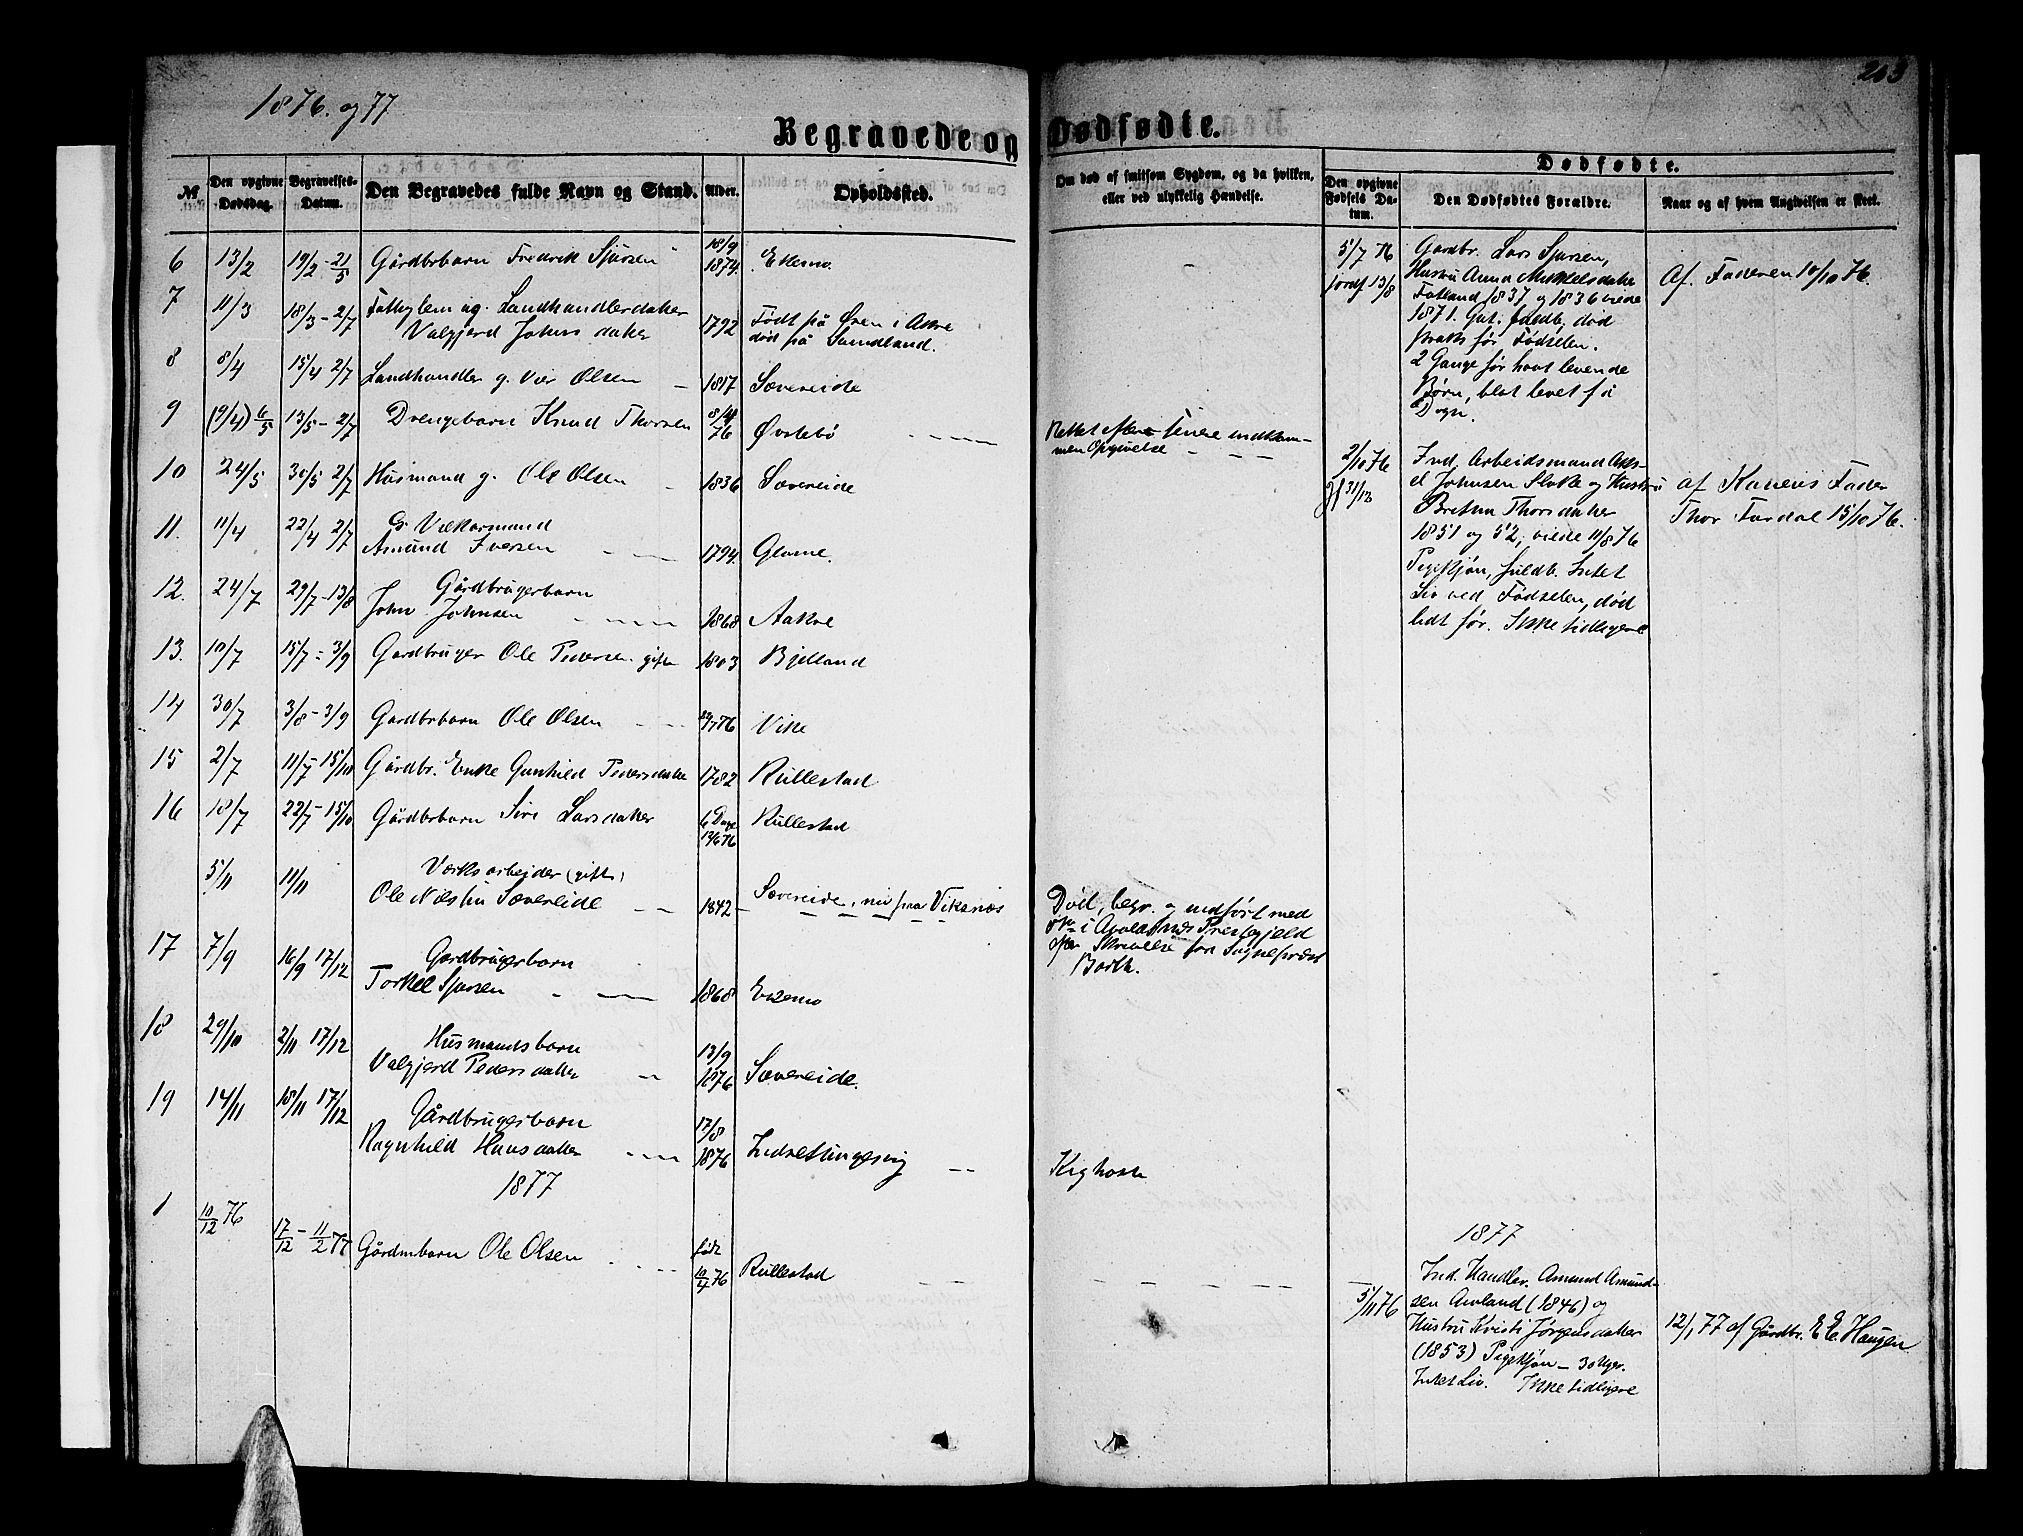 263
1876. og 77
Begravede og Dødfødte.
№
Den opgivne Dødsdag.
Begravelses-Datum.
Den Begravedes fulde Navn og Stand.
Alder.
Opholdssted.
Om død af smitsom Sygdom, og da hvilken,
eller ved ulykkelig Hændelse.
Dødfødte.
Den opgivne Fødsels Datum.
Den Dødfødtes Forældre.
Naar og af hvem Angivelsen er skeet.
6 13/2 19/2 - 21/5 Gårdbrbarn Fredrik Sjursen 18/9 1874. Ekemo.
7 11/3 18/3 - 2/7 Fattiglem ug. Landhandlerdatter
Valgjerd Johns datter 1792 Født på Øren i Akre
død på Sundland.
8 8/4 15/4 2/7 Landhandler g. Olsen 1817 Sævereide
9 (9/4) 6/5 13/5 - 2/7 Drengebarn Knud Thorsen 8/4 76 Øvstebö
Rettet efter senere indkom-
men Opgivelse
10 24/5 30/5 2/7 Husmand g. Ole Olsen 1836 Sævereide
11. 11/4 22/4 2/7 G. Værksmand
Amund Iversen 1794. Glome.
12. 24/7 29/7 - 13/8 Gårdbrugerbarn
John Johnsen 1868 Aakre
13. 10/7 15/7 - 3/9 Gardbruger Ole Pedersen gift 1803 Bjelland
14 30/7 3/8 - 3/9 Gardbrbarn Ole Olsen 76 Vike
15 2/7 11/7 - 15/10 Gårdbr. Enke Gunhild Pedersdatter 1782 Rullestad
16 18/7 22/7 - 15/10 Gårdbrbarn Siri Larsdatter 6 Dage 76 Rullestad
5/11 11/11 Værksarbeider (gift)
Ole Nilsen Sævereide 1842 Sævereide, nu fra Vikenæs
Død, begr. og indført med
i Prestegjeld
efter Skrivelse fra Sogneprest
Barth.
17 7/9 16/9 17/12 Gardbrugerbarn
Torkel Sjursen 1868 Ekemo
18 29/10 2/11 17/12 Husmandsbarn
Valgjerd Pedersdatter 13/9 1876 Sævereide.
19 14/11 18/11 17/12 Gårdbrugerbarn
Ragnhild Hansdatter 17/8 1876 Indre Tungesvig Kighoste
1877
1 10/12 76 17/12 - 11/2 77 Gårdmbarn Ole Olsen født 10/4 76 Rullestad
5/7 76 jordf 13/8
Gardbr. Lars Sjursen,
Hustru Anna Mikkelsdatter
Fatland 1837 og 1836 viede
1871. Gut. fuldb. død
straks før Fødselen.
2 Gange før havt levende
Børn, blot levet få
Døgn.
Af. Faderen 10/10 76.
2/10 76 31/12
Ind. Arbeidsmand Aks-
el Johnsen Sloke og Hustru
Bretha Thorsdatter
1851 og 52, viede 11/8 76
Pigekjøn, fuldb. Intet
Liv ved Fødselen, død
lidt før. Ikke tidligere
af Konens Fader
Thor Fardal 15/10 76.
1877
5/11 76
Ind. Handler. Amund Amund-
sen Avland (1846) og
Hustru Kristi Jørgensdatter
(1853) Pigekjøn - 30 Uger.
Intet Liv. Ikke tidligere
12/1 77 af Gårdbr. E E. Haugen